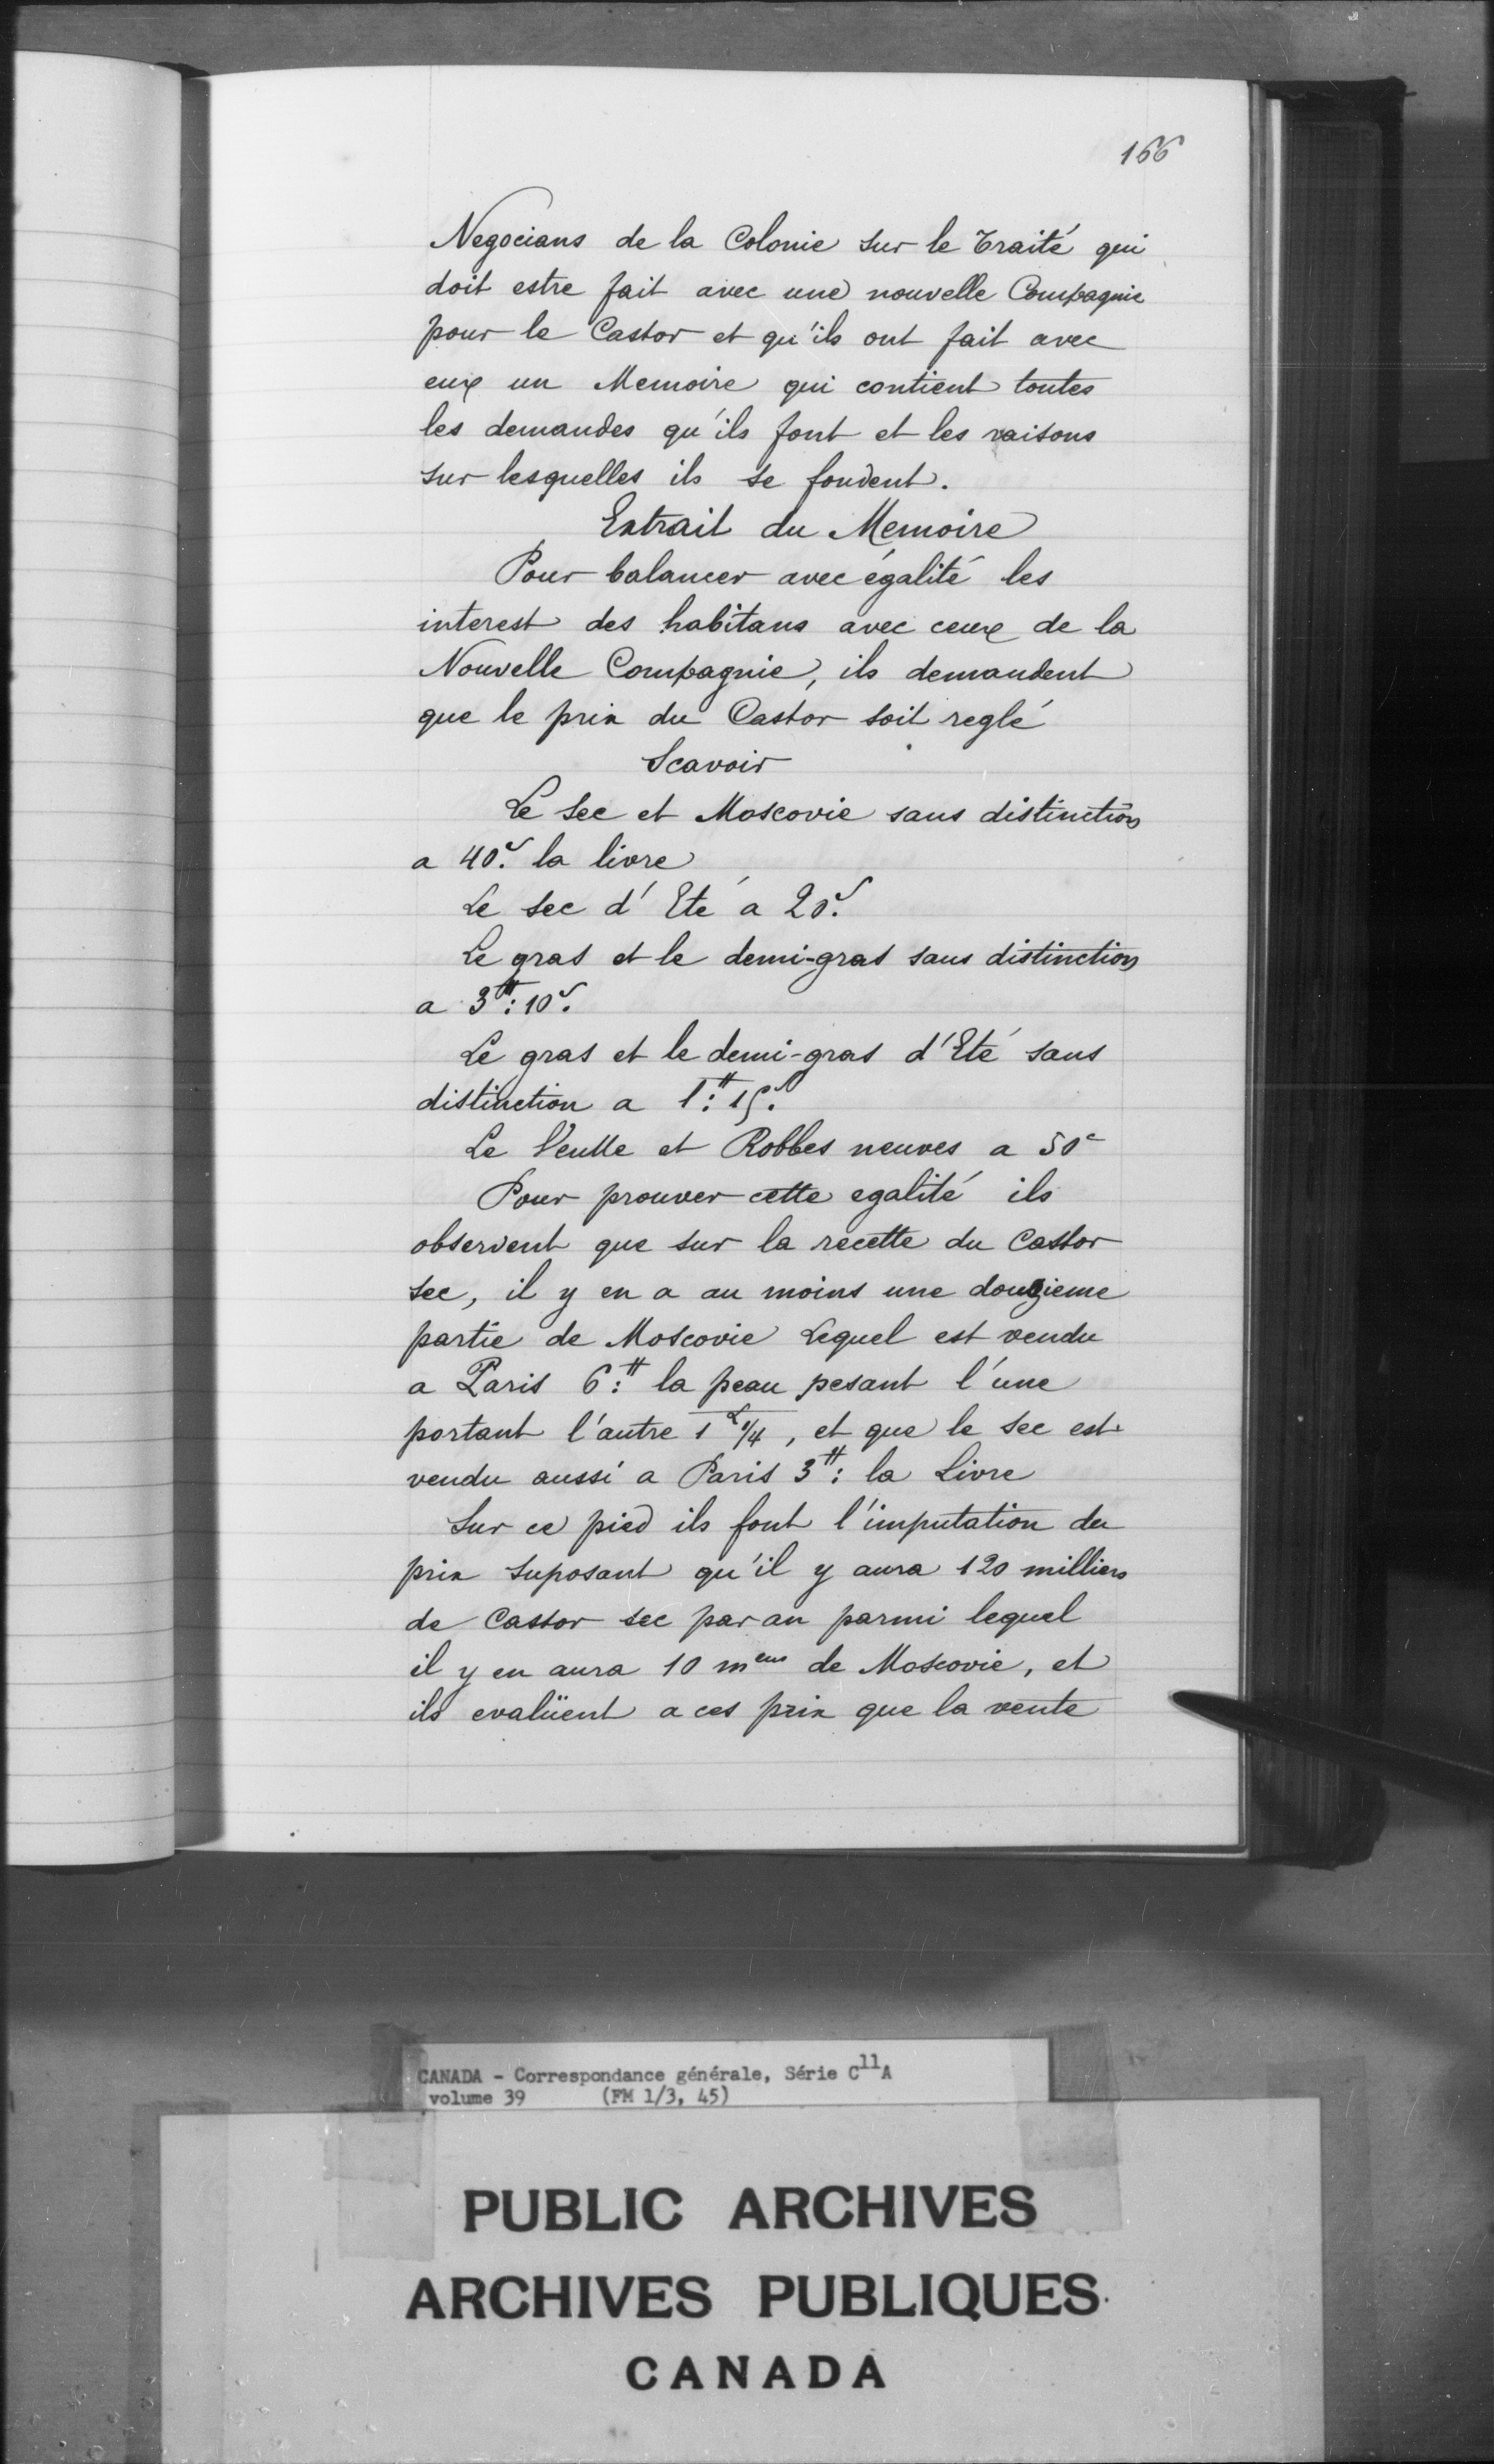 166
Negocians de la Colonie sur le Traité qui
doit estre fait avec une nouvelle Compagnie
pour le Castor et qu'ils ont fait avec
eux un Memoire qui contient toutes
les demandes qu'ils font et les raisons
sur lesquelles ils se fondent.
Extrait du Memoire
Pour balancer avec égalité les
interest des habitans avec ceux de la
Nouvelle Compagnie, ils demandent
que le prix du Castor soit reglé
Scavoir
Le sec et Moscovie sans distinction
a 40.s la livre
Le sec d'Eté a 20.s
Le gras et le demi-gras sans distinction
a 3⁠#: 10.s
Le gras et le demi-gras d'Eté sans
distinction a 1#: 15.s
Le Veulle et Robbes neuves a 50s
Pour prouver cette egalité ils
observent que sur la recette du Castor
sec, il y en a au moins une douzieme
partie de Moscovie Lequel est vendu
a Paris 6:# la peau pesant l'une
portant l'autre 1 L 1/4, et que le sec est
vendu aussi a Paris 3#: la Livre
Sur ce pied ils font l'imputation du
prix suposant qu'il y aura 120 milliers
de Castor sec par an parmi lequel
il y en aura 10 mers de Moscovie, et
ils evalüent a ces prix que la vente
CANADA - Correspondance générale, Série C11A
volume 39 (FM 1/3, 45)
PUBLIC ARCHIVES
ARCHIVES PUBLIQUES
CANADA